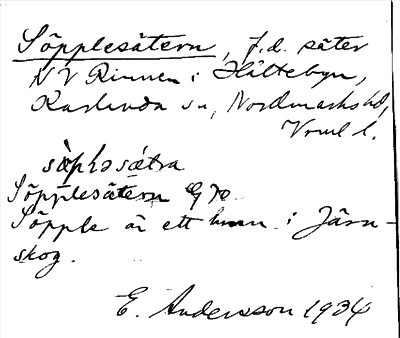 Söpplesätern, f.d. säter
NV Rinnen i Hältebyn,
Karlanda sn, Nordmarks hd,
Vrml l.
söplə sætra
Söpplesätern GK
Söpple är ett hmn i Järn-
skog.
E. Andersson 1934